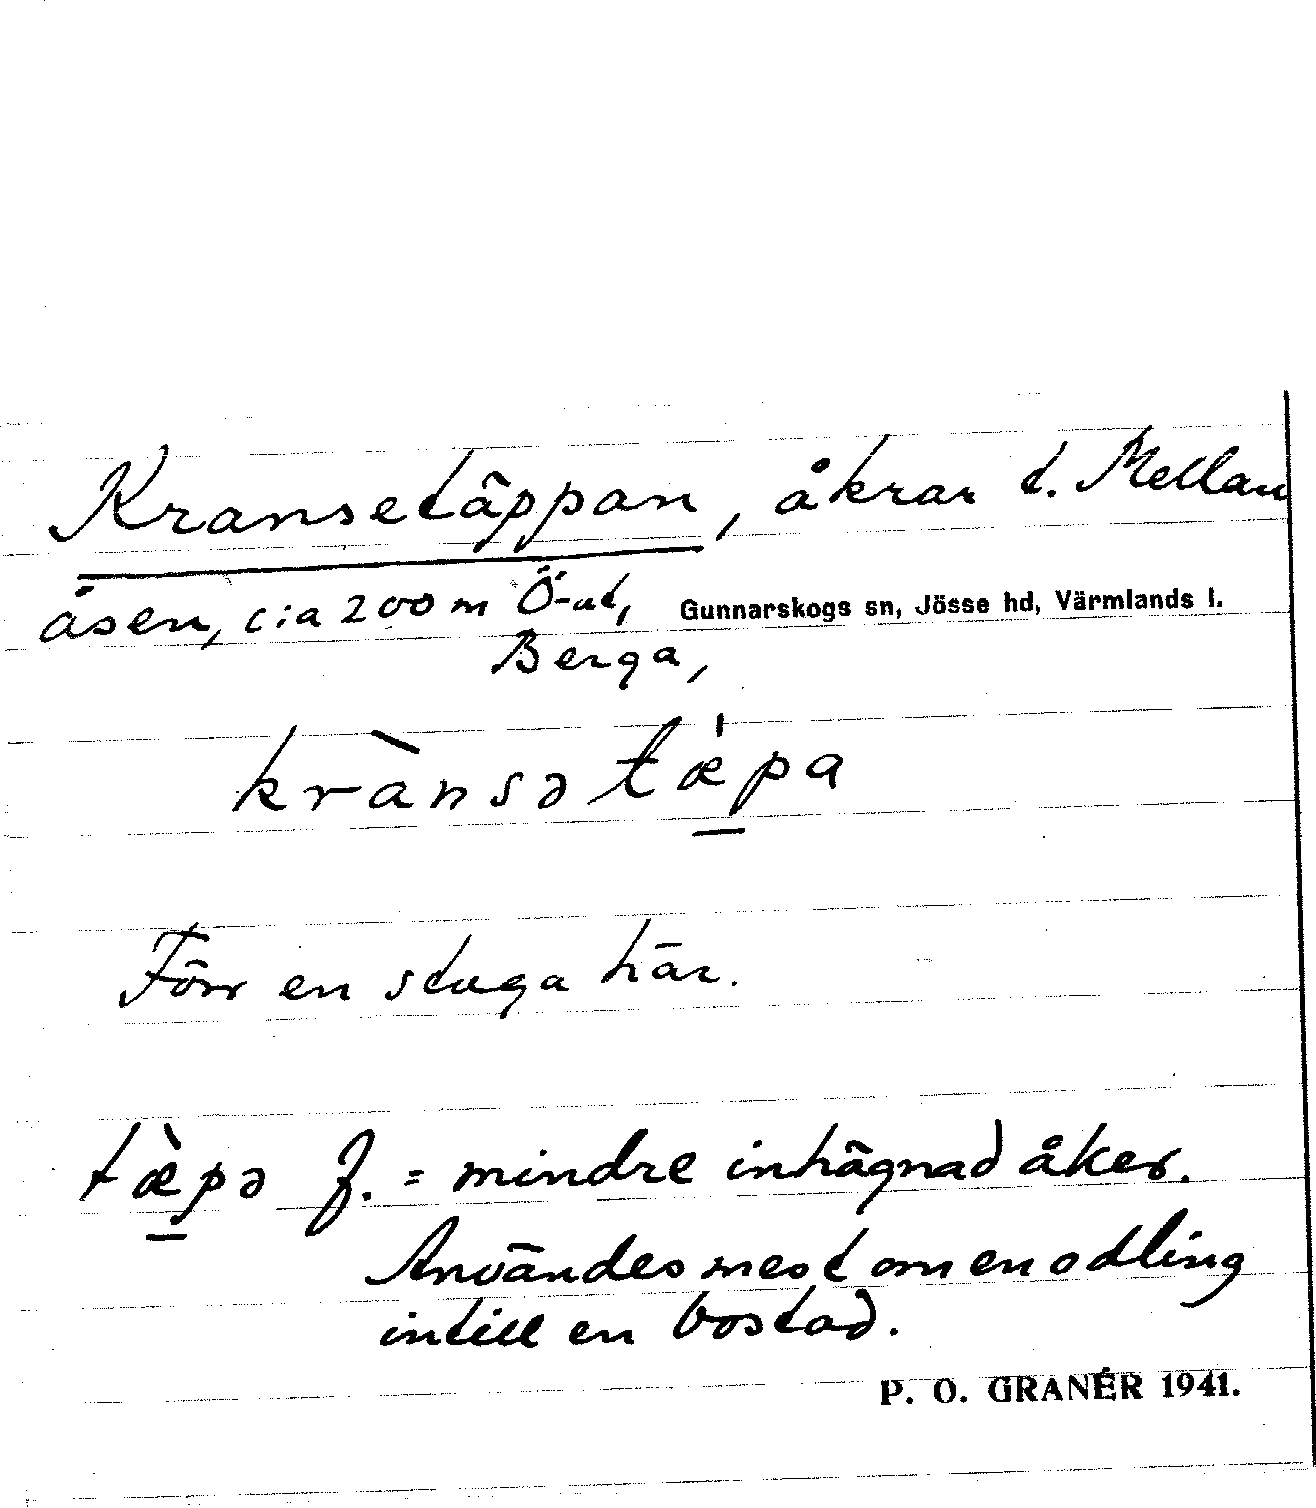 Kransetäppan, åkrar t. Mellan
åsen, c:a 200 m Ö-ut, Gunnarskogs sn, Jösse hd, Värmlands l.
Berga,
krànsə tǽpa
Förr en stuga här.
tæ̀pə f. = mindre inhägnad åker.
Användes mest om en odling
intill en bostad.
P. O. GRANÉR 1941.